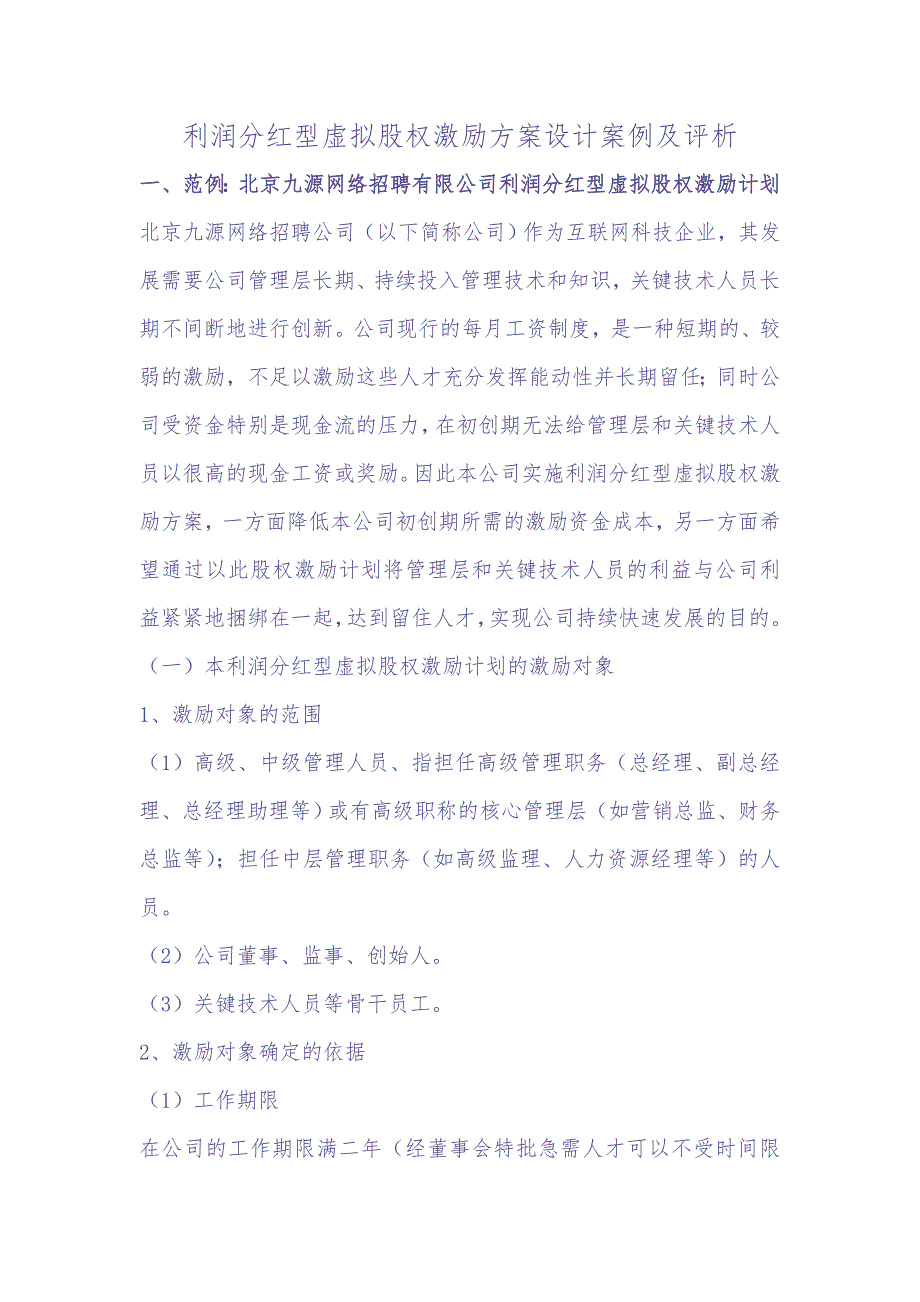 利润分红型虚拟股权激励方案设计案例及评析
一、范例：北京九源网络招聘有限公司利润分红型虚拟股权激励计划
北京九源网络招聘公司（以下简称公司）作为互联网科技企业，其发
展需要公司管理层长期、持续投入管理技术和知识，关键技术人员长
期不间断地进行创新。公司现行的每月工资制度，是一种短期的、较
弱的激励，不足以激励这些人才充分发挥能动性并长期留任；同时公
司受资金特别是现金流的压力，在初创期无法给管理层和关键技术人
员以很高的现金工资或奖励。因此本公司实施利润分红型虚拟股权激
励方案，一方面降低本公司初创期所需的激励资金成本，另一方面希
望通过以此股权激励计划将管理层和关键技术人员的利益与公司利
益紧紧地捆绑在一起，达到留住人才，实现公司持续快速发展的目的。
（一）本利润分红型虚拟股权激励计划的激励对象
1、激励对象的范围
（1）高级、中级管理人员、指担任高级管理职务（总经理、副总经
理、总经理助理等）或有高级职称的核心管理层（如营销总监、财务
总监等）；担任中层管理职务（如高级监理、人力资源经理等）的人
员。
（2）公司董事、监事、创始人。
（3）关键技术人员等骨干员工。
2、激励对象确定的依据
（1）工作期限
在公司的工作期限满二年（经董事会特批急需人才可以不受时间限